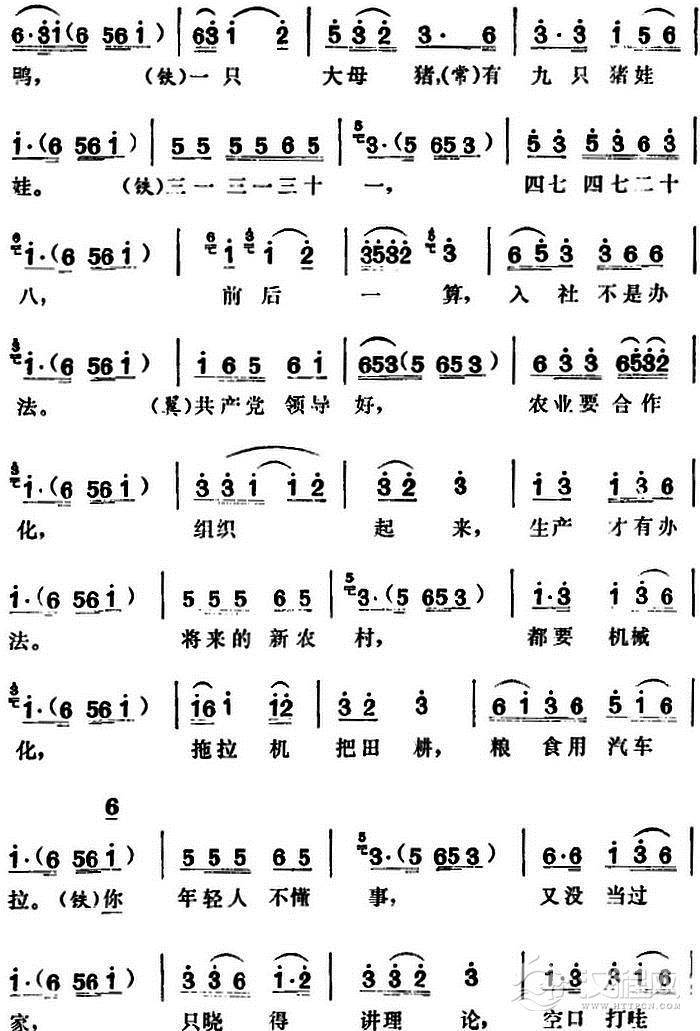 6·3i(6 56i) | 63i 2 | 532 3· 6 | 3·3 i56 |
鸭, (铁)一只 大母 猪,(常)有 九只 猪娃
i·(6 56i) | 55 5565 | 3·(5 653) | 53 5363 |
娃。 (铁)三一 三一三十 一, 四七 四七二十
i·(6 56i) | i i 2 | 3532 3 | 653 636 |
八, 前后 一 算, 入社 不是办
i·(6 56i) | i65 6i | 653(5 653) | 633 6532 |
法。 (翼)共产党 领导 好, 农业要 合作
i·(6 56i) | 33i i2 | 32 3 | i3 i36 |
化, 组织 起 来, 生产 才有办
i·(6 56i) | 555 65 | 3·(5 653) | i·3 i36 |
法。 将来的 新农 村, 都要 机械
i·(6 56i) | i6i i2 | 332 3 | 6i36 5i6 |
化, 拖拉 机 把田 耕, 粮食用 汽车
6
i·(6 56i) | 555 65 | 3·(5 653) | 6·6 i36 |
拉。(铁)你 年轻人 不懂 事, 又没 当过
i·(6 56i) | 336 i·2 | 332 3 | 33 3i6 |
家, 只晓 得 讲理 论, 空口 打哇
WWW.HTTPCN.COM